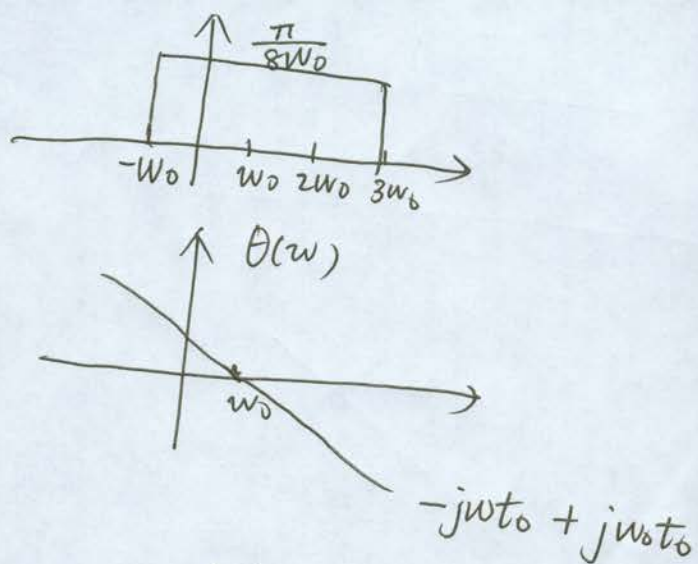 π/8W₀
-W₀ w₀ 2w₀ 3w₀
θ(w)
w₀
-jwt₀ + jw₀t₀